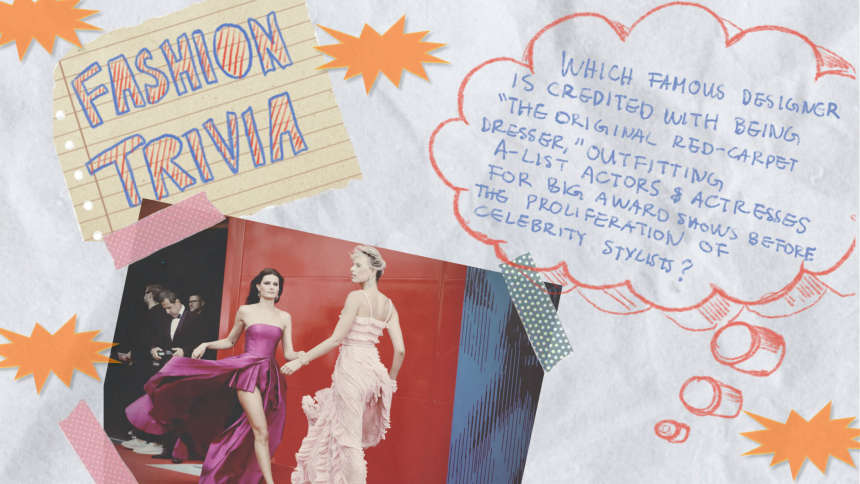 FASHION
TRIVIA
WHICH FAMOUS DESIGNER
IS CREDITED WITH BEING
"THE ORIGINAL RED-CARPET
DRESSER," OUTFITTING
A-LIST ACTORS & ACTRESSES
FOR BIG AWARD SHOWS BEFORE
THE PROLIFERATION OF
CELEBRITY STYLISTS?